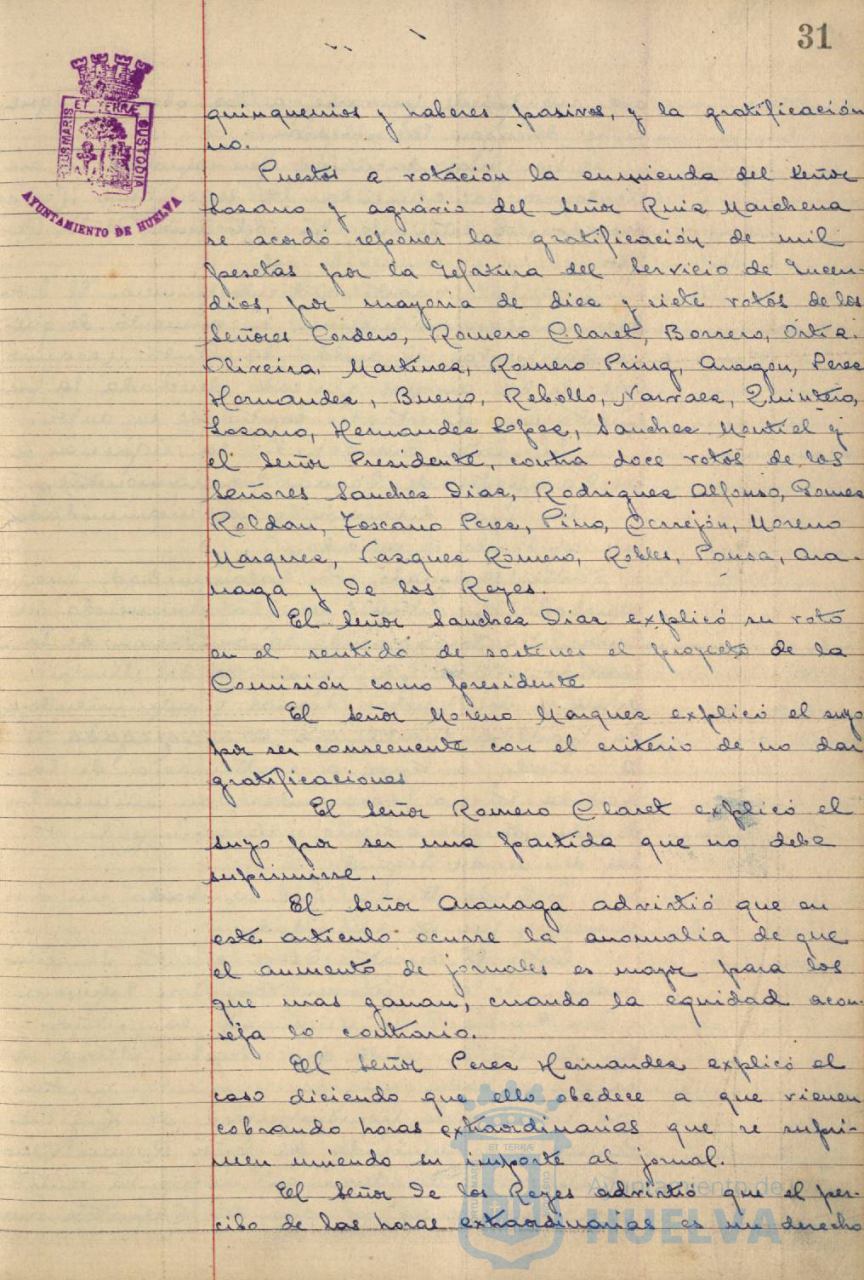 31
PORTUS MARIS ET TERRÆ CUSTODIA
AYUNTAMIENTO DE HUELVA
quinquenios y haberes pasivos, y la gratificación
no.
Puestos a votación la enmienda del Señor
Lozano y agrávio del Señor Ruiz Marchena
se acordó reponer la gratificación de mil
pesetas por la Jefatura del Servicio de Incen-
dios, por mayoria de diez y siete votos de los
Señores Cordero, Romero Claret, Borrero, Ortiz,
Oliveira, Martinez, Romero Pring, Aragon, Perez
Hernandez, Bueno, Rebollo, Narvaez, Quintero,
Lozano, Hernandez López, Sanchez Montiel y
el Señor Presidente, contra doce votos de los
Señores Sanchez Diaz, Rodriguez Alfonso, Gomez
Roldan, Toscano Perez, Pino, Cerrejón, Moreno
Marquez, Vazquez Romero, Robles, Ponsa, Ara-
naga y De los Reyes.
El Señor Sanchez Diaz explicó su voto
en el sentido de sostener el proyecto de la
Comisión como presidente
El Señor Moreno Márquez explicó el suyo
por ser consecuente con el criterio de no dar
gratificaciones
El Señor Romero Claret explicó el
suyo por ser una partida que no debe
suprimirse.
El Señor Aranaga advirtió que en
este articulo ocurre la anomalia de que
el aumento de jornales es mayor para los
que mas ganan, cuando la equidad acon-
seja lo contrario.
El Señor Perez Hernandez explicó el
caso diciendo que ello obedece a que vienen
cobrando horas extraordinarias que se supri-
men uniendo su importe al jornal.
El Señor De los Reyes advirtió que el per-
cibo de las horas extraordinarias es un derecho
ET TERRÆ
Ayuntamiento de
HUELVA